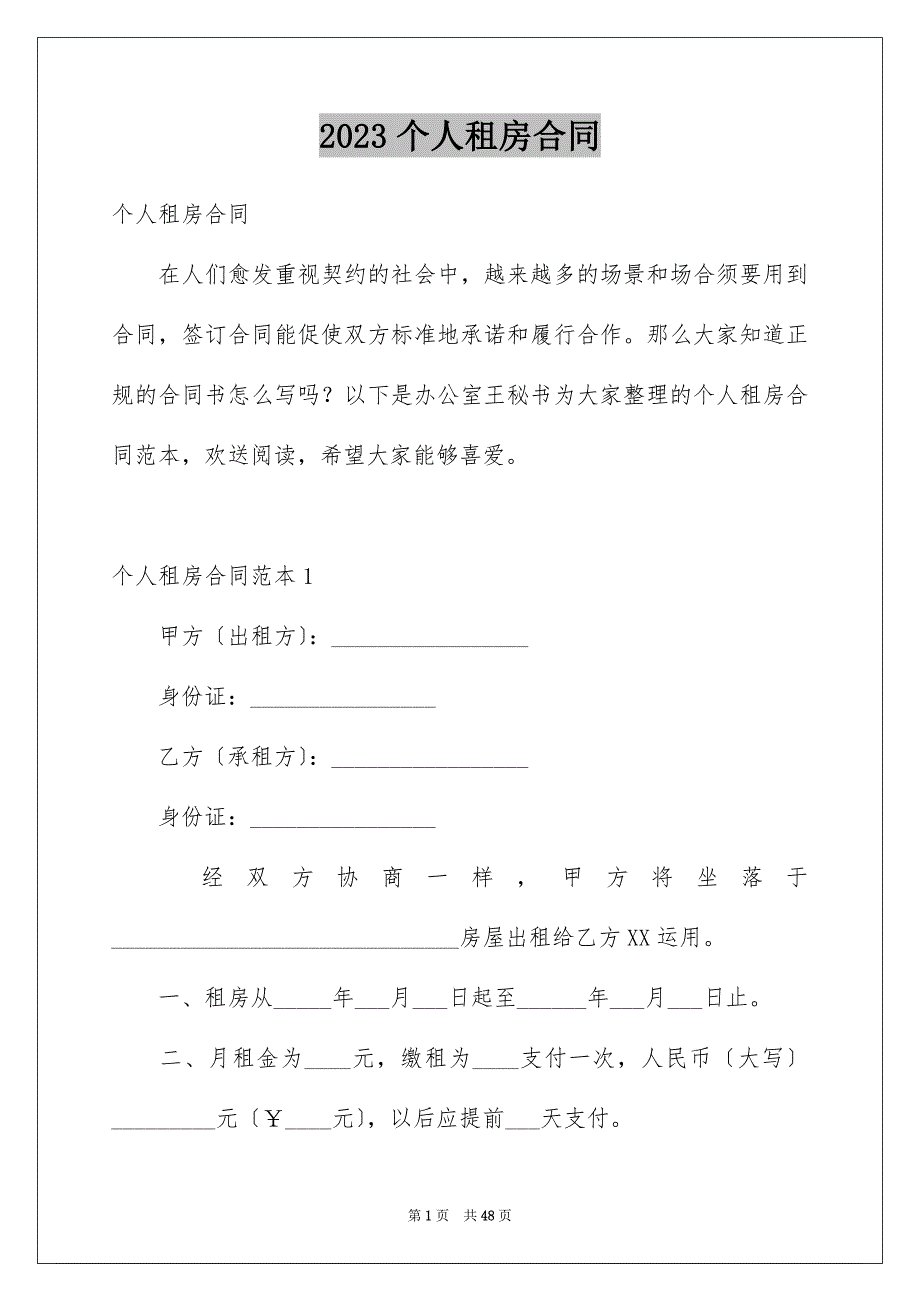 2023个人租房合同
个人租房合同
在人们愈发重视契约的社会中，越来越多的场景和场合须要用到
合同，签订合同能促使双方标准地承诺和履行合作。那么大家知道正
规的合同书怎么写吗？以下是办公室王秘书为大家整理的个人租房合
同范本，欢送阅读，希望大家能够喜爱。
个人租房合同范本1
甲方〔出租方〕：_________________
身份证：________________
乙方〔承租方〕：_________________
身份证：________________
经双方协商一样，甲方将坐落于
______________________________房屋出租给乙方XX运用。
一、租房从_____年___月___日起至______年___月___日止。
二、月租金为____元，缴租为____支付一次，人民币〔大写〕
_________元〔￥____元〕，以后应提前___天支付。
第1页 共48页